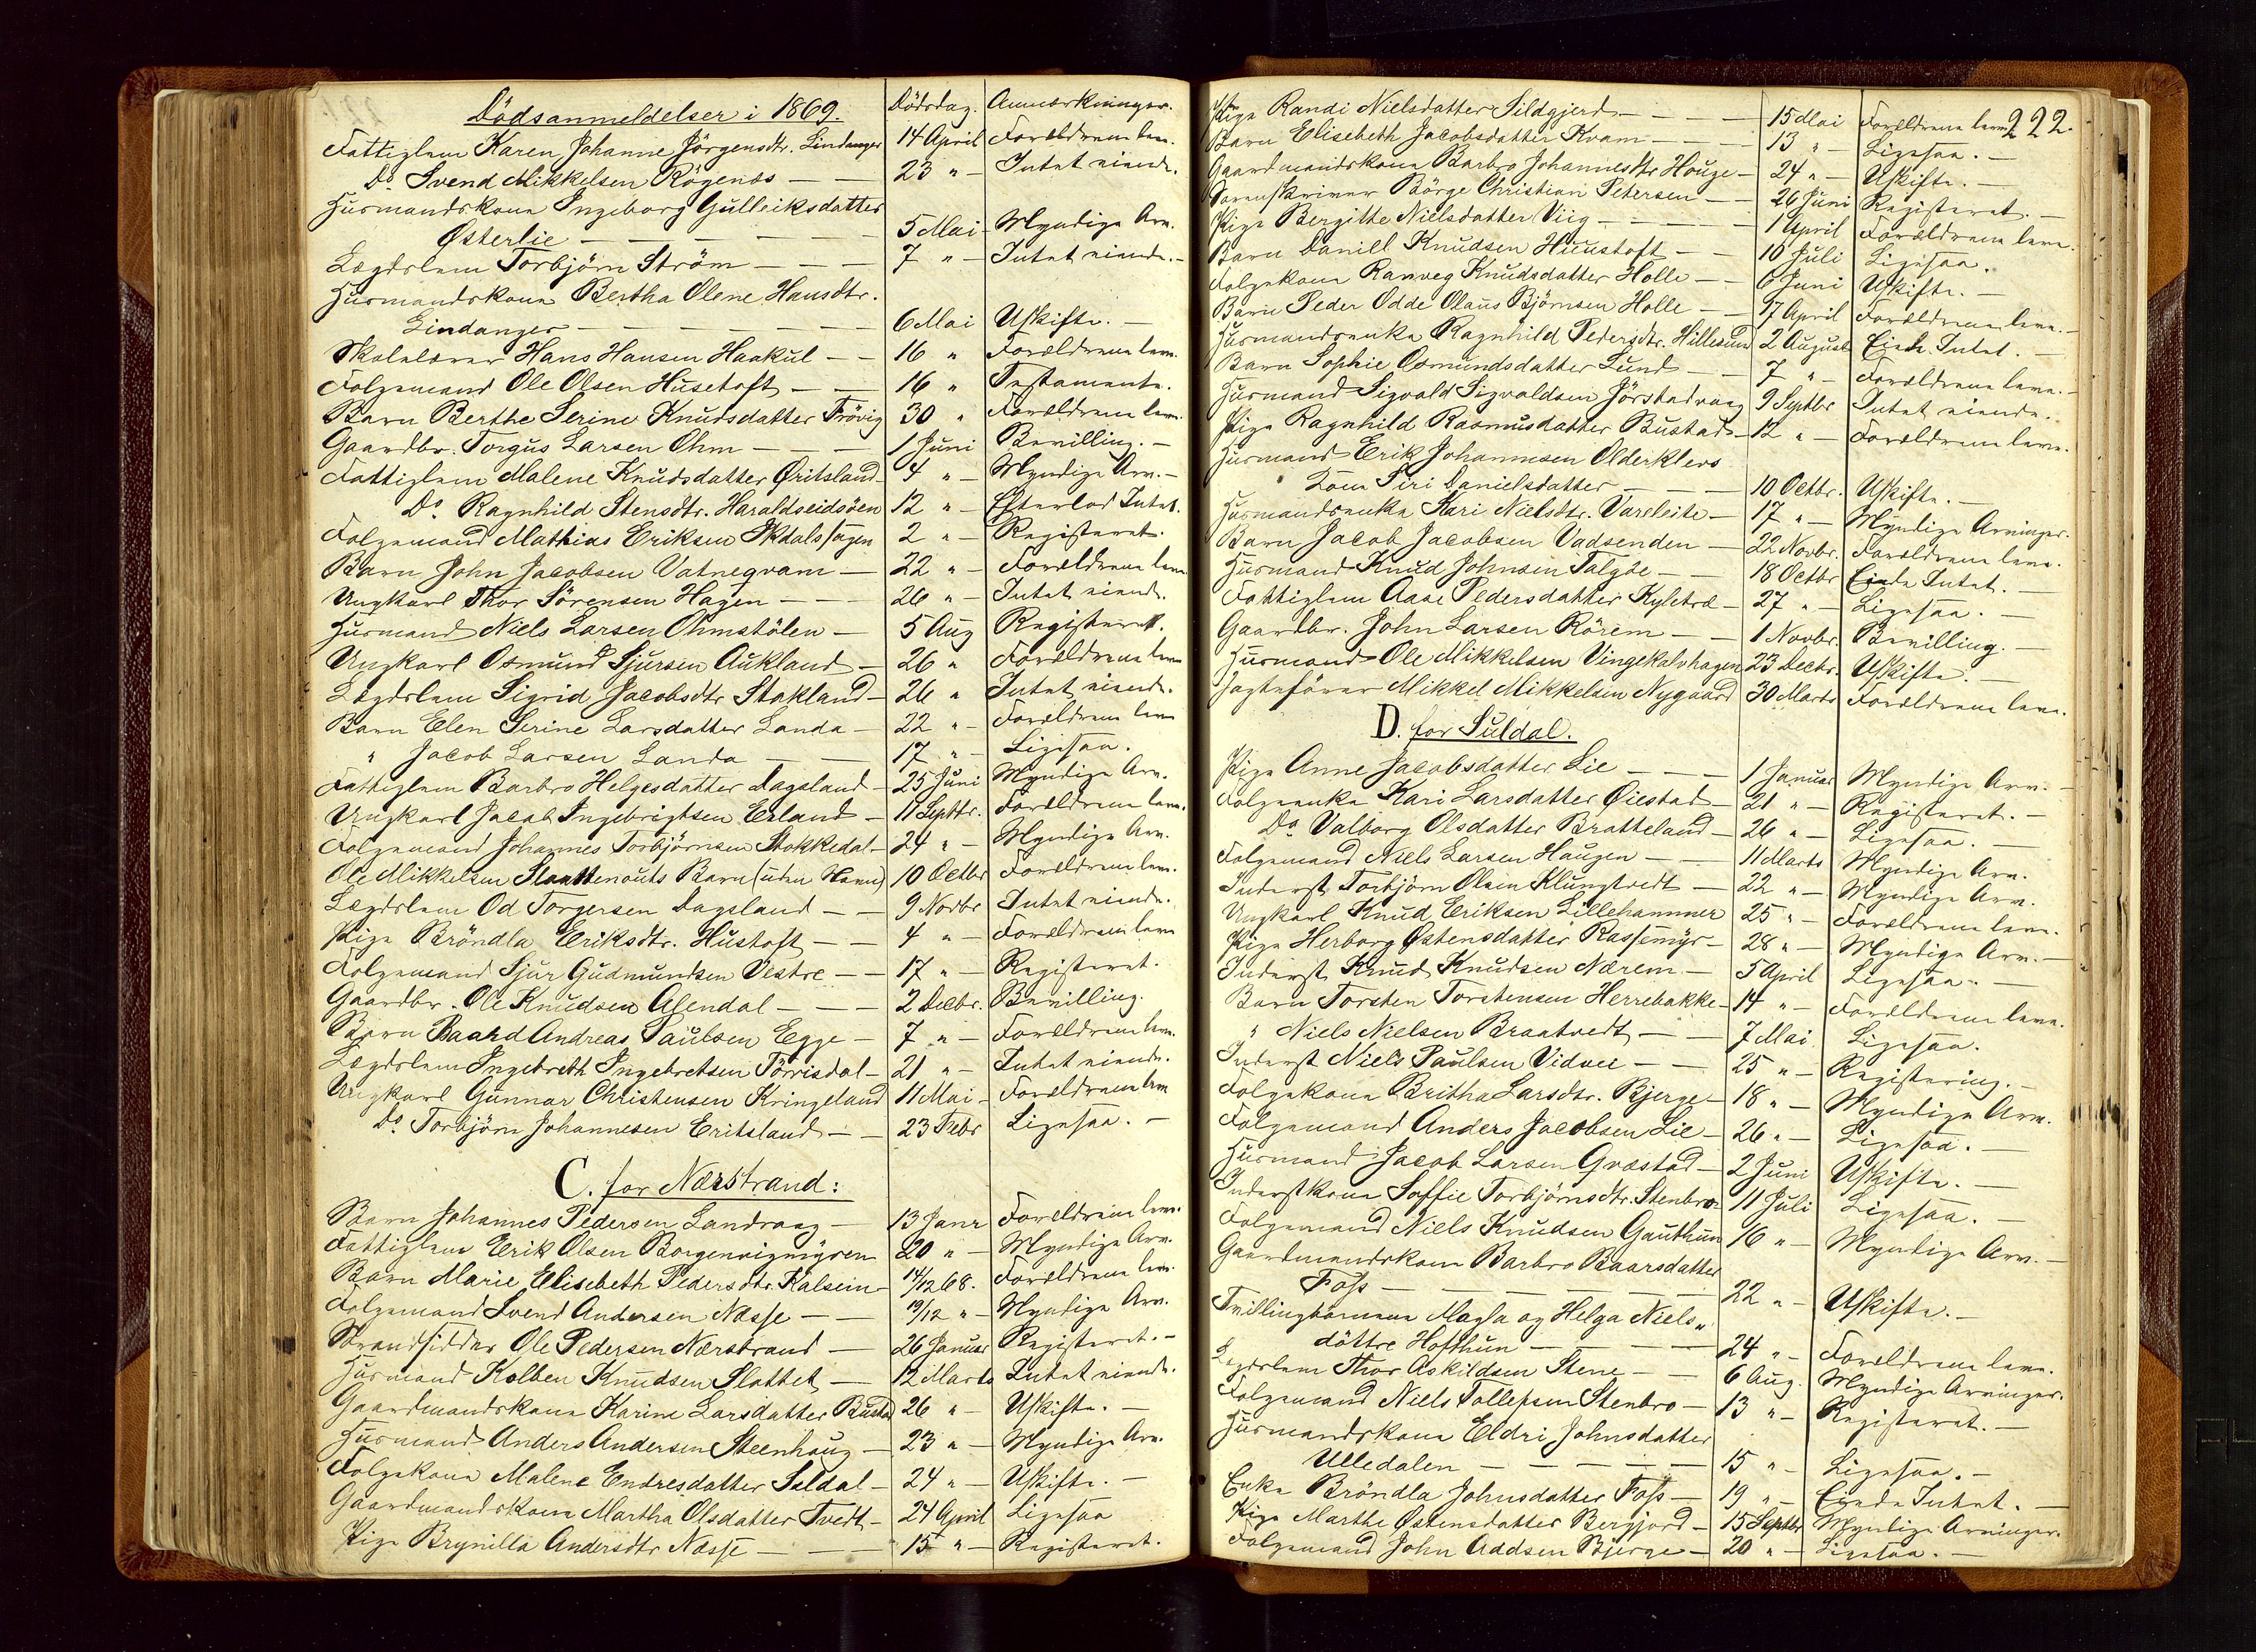 Dödsanmeldelser i 1869. Dödsdag. Anmærkninger.
Fattiglem Karen Johanne Jörgensdtr. Lindanger 14 April Forældrene leve.
Do Svend Mikkelsen Rögenæs — 23 " — Intet eiende.
Husmandskone Ingeborg Gulleiksdatter
Østerlie — — — — 5 Mai — Myndige Arv.
Lægdslem Torbjörn Ström — — — 7 " — Intet eiende. —
Husmandskone Bertha Olene Hansdtr.
Lindanger — — — — — 6 Mai Uskifte. —
Skolelærer Hans Hansen Haakul — — 16 " Forældrene leve.
Folgemand Ole Olsen Husetoft — — 16 " Testamente.
Barn Berthe Serine Knudsdatter Frövig 30 " Forældrene leve.
Gaardbr. Torgus Larsen Ohm — — — 1 Juni Bevilling. —
Fattiglem Malene Knudsdatter Øritsland 4 " — Myndige Arv. —
Do Ragnhild Stensdtr. Haraldseidsöen 12 " — Efterlod Intet.
Folgemand Mathias Eriksen 2 " — Registeret.
Barn John Jacobsen Vatnegvam — 22 " — Forældrene leve
Ungkarl Thor Sörensen Hagen — — 26 " — Intet eiende.
Husmand Niels Larsen Ohmstölen — 5 Aug Registeret.
Ungkarl Osmund Sjursen Aukland — 26 " Forældrene leve
Lægdslem Sigrid Jacobsdtr Stakland — 26 " Intet eiende.
Barn Elen Serine Larsdatter Landa — 22 " — Forældrene leve
" Jacob Larsen Landa — — 17 " — Ligesaa.
Fattiglem Barbro Helgesdatter Dagsland — 25 Juni Myndige Arv.
Ungkarl Jacob Ingebrigtsen Erland — 11 Septbr. Forældrene leve.
Folgemand Johannes Torbjörnsen Stokkedal — 24 " — Myndige Arv.
Ole Mikkelsen Barn (uden Navn) 10 Octbr Forældrene leve.
Lægdslem Od Torgersen Dagsland — — 9 Novbr Intet eiende.
Pige Bröndla Eriksdtr. Hustoft — — 4 " — Forældrene leve
Folgemand Sjur Gudmundsen Vestre — — 17 " — Registeret.
Gaardbr. Ole Knudsen Alendal — — — 2 Decbr. Bevilling.
Barn Baard Andreas Paulsen Egge — 7 " — Forældrene leve.
Lægdslem Ingebreth Ingebretsen Törrisdal — 21 " — Intet eiende.
Ungkarl Gunnar Christensen Kringeland 11 Mai — Forældrene leve
Do Torbjörn Johannesen Eritsland — — 23 Febr Ligesaa. —
C. for Nærstrand:
Barn Johannes Pedersen Landraag — 13 Janr Forældrene leve.
Fattiglem Erik Olsen Borgenvigmyren 20 " — Myndige Arv.
Barn Marie Elisebeth Pedersdtr. Kalsem — 14/12 68. Forældrene leve.
Folgemand Svend Andersen Næsse — — 19/12 " — Myndige Arv.
Strandsidder Ole Pedersen Nærstrand — 26 Januar Registeret. —
Husmand Kolben Knudsen Slattet — 12 Marts Intet eiende.
Gaardmandskone Karine Larsdatter Bustad 26 " — Uskifte. —
Husmand Anders Andersen Steenhaug — 23 " — Myndige Arv.
Folgekone Malene Endresdatter Seldal — 24 " — Uskifte. —
Gaardmandskone Martha Olsdatter Tvedt — 24 April Ligesaa
Pige Brynilla Andersdtr Næsse — — — 15 " — Registeret.
222.
Pige Randi Nielsdatter Sildgjerd — — — 15 Mai Forældrene leve
Barn Elisebeth Jacobsdatter Kvam — — — 13 " — Ligesaa. —
Gaardmandskone Barbro Johannesdtr Houge — 24 " — Uskifte. —
Sorenskriver Börge Christian Petersen — — 26 Juni Registeret. —
Pige Bergitte Nielsdatter Viig — — — 1 April Forældrene leve.
Barn Daniel Knudsen Huustoft — — 10 Juli Ligesaa.
Folgekone Ranveg Knudsdatter Holle — — 6 Juni Uskifte. —
Barn Peder Odde Olaus Björnsen Holle — — 17 April Forældrene leve. —
Husmandsenke Ragnhild Pedersdtr. Hillesund 2 August Eiede Intet. —
Barn Sophie Osmundsdatter Lund — — 7 " — Forældrene leve. —
Husmand Sigvald Sigvaldsen Jörstadvaag 9 Septbr Intet eiende.
Pige Ragnhild Rasmusdatter Bustad — 12 " — Forældrene leve.
Husmand Erik Johannesen Olderklevs
Kone Siri Danielsdatter — — — 10 Octbr. Uskifte. —
Husmandsenke Kari Nielsdtr. Vareleite — 17 " — Myndige Arvinger.
Barn Jacob Jacobsen Vadsenden — 22 Novbr. Forældrene leve.
Husmand Knud Johnsen Talgse — — 18 Octbr Eiede Intet. —
Fattiglem Aase Pedersdatter Kyletræ — 27 " — Ligesaa. —
Gaardbr. John Larsen Rörem — — 1 Novbr. Bevilling. —
Husmand Ole Mikkelsen Vingekalvhagen 23 Decbr. Uskifte. —
Jagtefører Mikkel Mikkelsen Nygaard 30 Marts Forældrene leve.
D. for Suldal.
Pige Anne Jacobsdatter Lie — — — 1 Januar Myndige Arv. —
Folgeenke Kari Larsdatter Øiestad — 21 " — Registeret. —
Do Valborg Olsdatter Bratteland — 26 " — Ligesaa. —
Folgemand Niels Larsen Haugen — — 11 Marts Myndige Arv.
Inderst Torbjörn Olsen Klungtvedt — 22 " — Myndige Arv.
Ungkarl Knud Eriksen Lillehammer 25 " — Forældrene leve.
Pige Herborg Østensdatter Rassemyr — 28 " — Myndige Arv. —
Inderst Knud Knudsen Nærem — 5 April Ligesaa. —
Barn Torsten Torstensen Herrebakke — 14 " — Forældrene leve.
" Niels Nielsen Braatvedt — — 7 Mai Ligesaa.
Inderst Niels Paulsen Vidvei — — 25 " — Registering. —
Folgekone Britha Larsdtr. Bjerge — 18 " — Myndige Arv.
Folgemand Anders Jacobsen Lie — 26 " — Ligesaa. —
Husmand Jacob Larsen Gvæstad — 2 Juni Uskifte. —
Inderstkone Soffie Torbjörnsdtr. Stenbro — 11 Juli Ligesaa. —
Folgemand Niels Knudsen Gauthun 16 " — Myndige Arv. —
Gaardmandskone Barbro Baarsdatter
Foss — — — — — 22 " — Uskifte. —
Tvillingbörnene Magla og Helga Niels„
döttre Hofthun — — — — 24 " — Forældrene leve.
Lægdslem Thor Askildsen Stene — — 6 Aug. Myndige Arvinger.
Folgemand Niels Tollefsen Stenbro — 13 " — Registeret. —
Husmandskone Eldri Johnsdatter
Ulledalen — — — — — 15 " — Ligesaa. —
Enke Bröndla Johnsdatter Foss — 19 " — Eiede Intet. —
Pige Marthe Østensdatter Bergjord — 15 Septbr Myndige Arvinger.
Folgemand John Addsen Bjerge — 20 " — Ligesaa. —